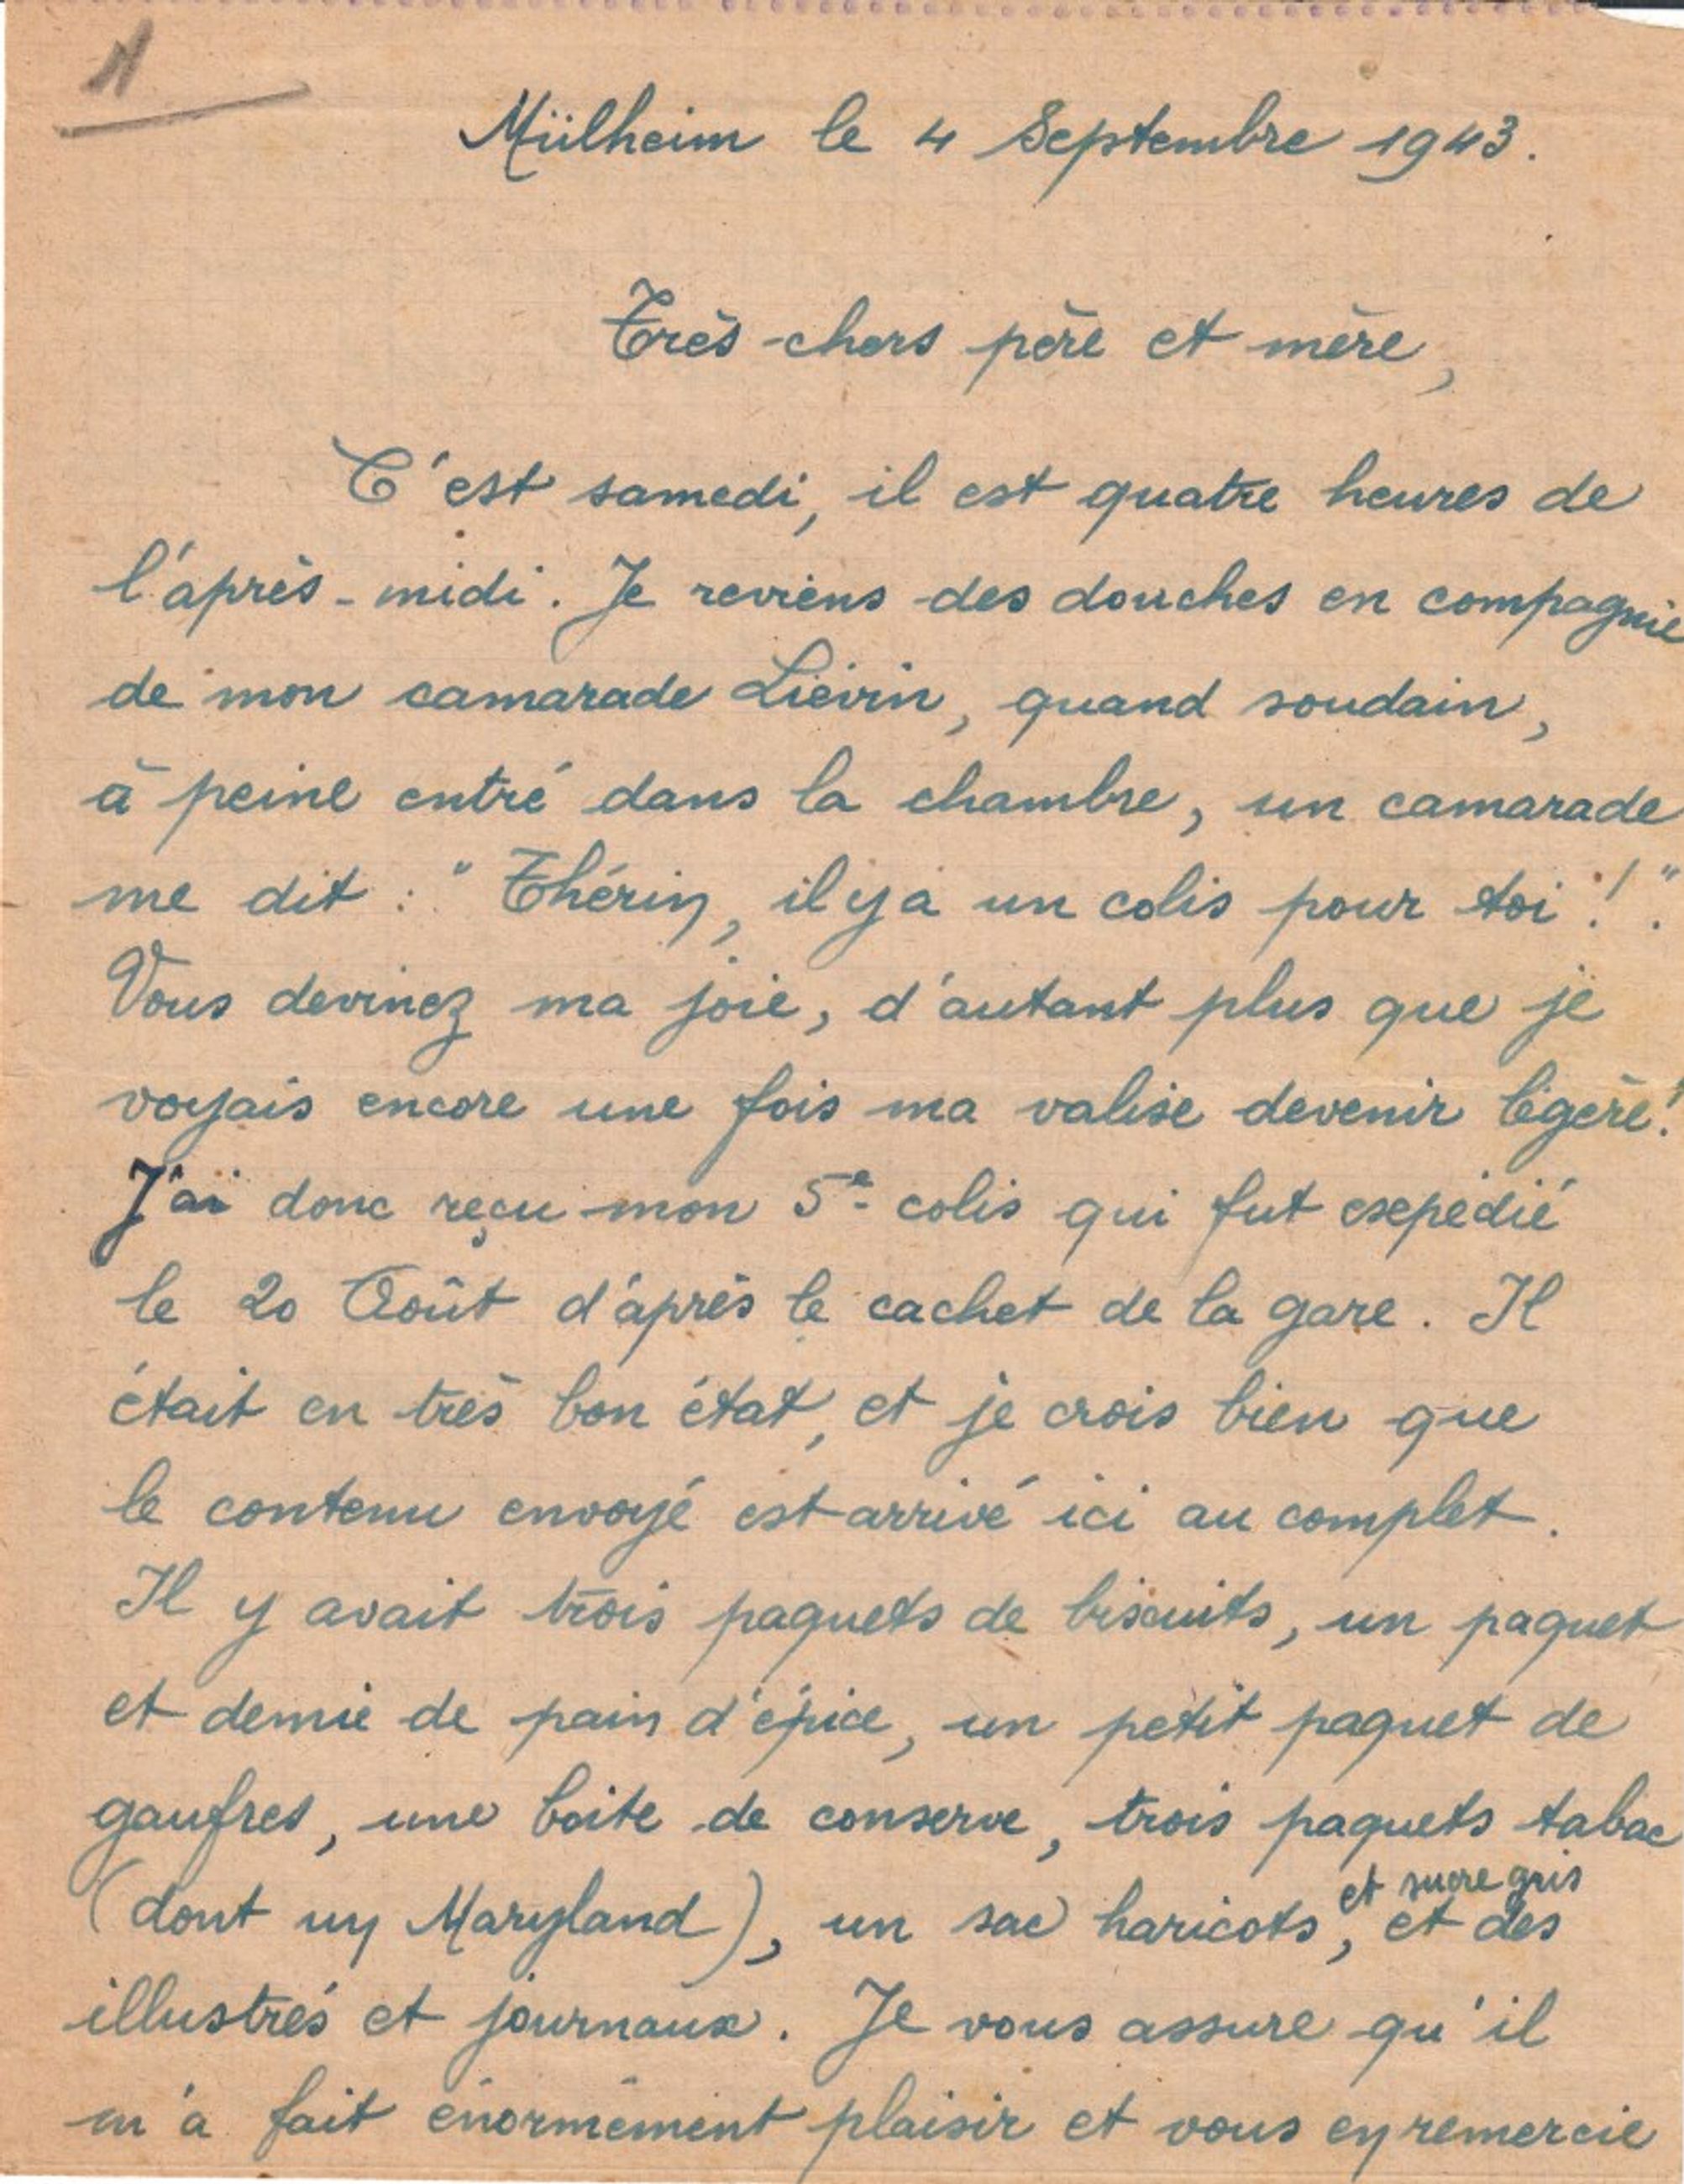 Mülheim le 4 Septembre 1943.
Très-chers père et mère,
C'est samedi, il est quatre heures de
l'après-midi. Je reviens des douches en compagnie
de mon camarade Liévin, quand soudain,
à peine entré dans la chambre, un camarade
me dit : "Thérin, il y a un colis pour toi !".
Vous devinez ma joie, d'autant plus que je
voyais encore une fois ma valise devenir légère!
J'ai donc reçu mon 5e colis qui fut expédié
le 20 Août d'après le cachet de la gare. Il
était en très bon état, et je crois bien que
le contenu envoyé est arrivé ici au complet.
Il y avait trois paquets de biscuits, un paquet
et demie de pain d'épice, un petit paquet de
gaufres, une boite de conserve, trois paquets tabac
(dont un Maryland), un sac haricots, et sucre gris et des
illustrés et journaux. Je vous assure qu'il
m'a fait énormément plaisir et vous en remercie